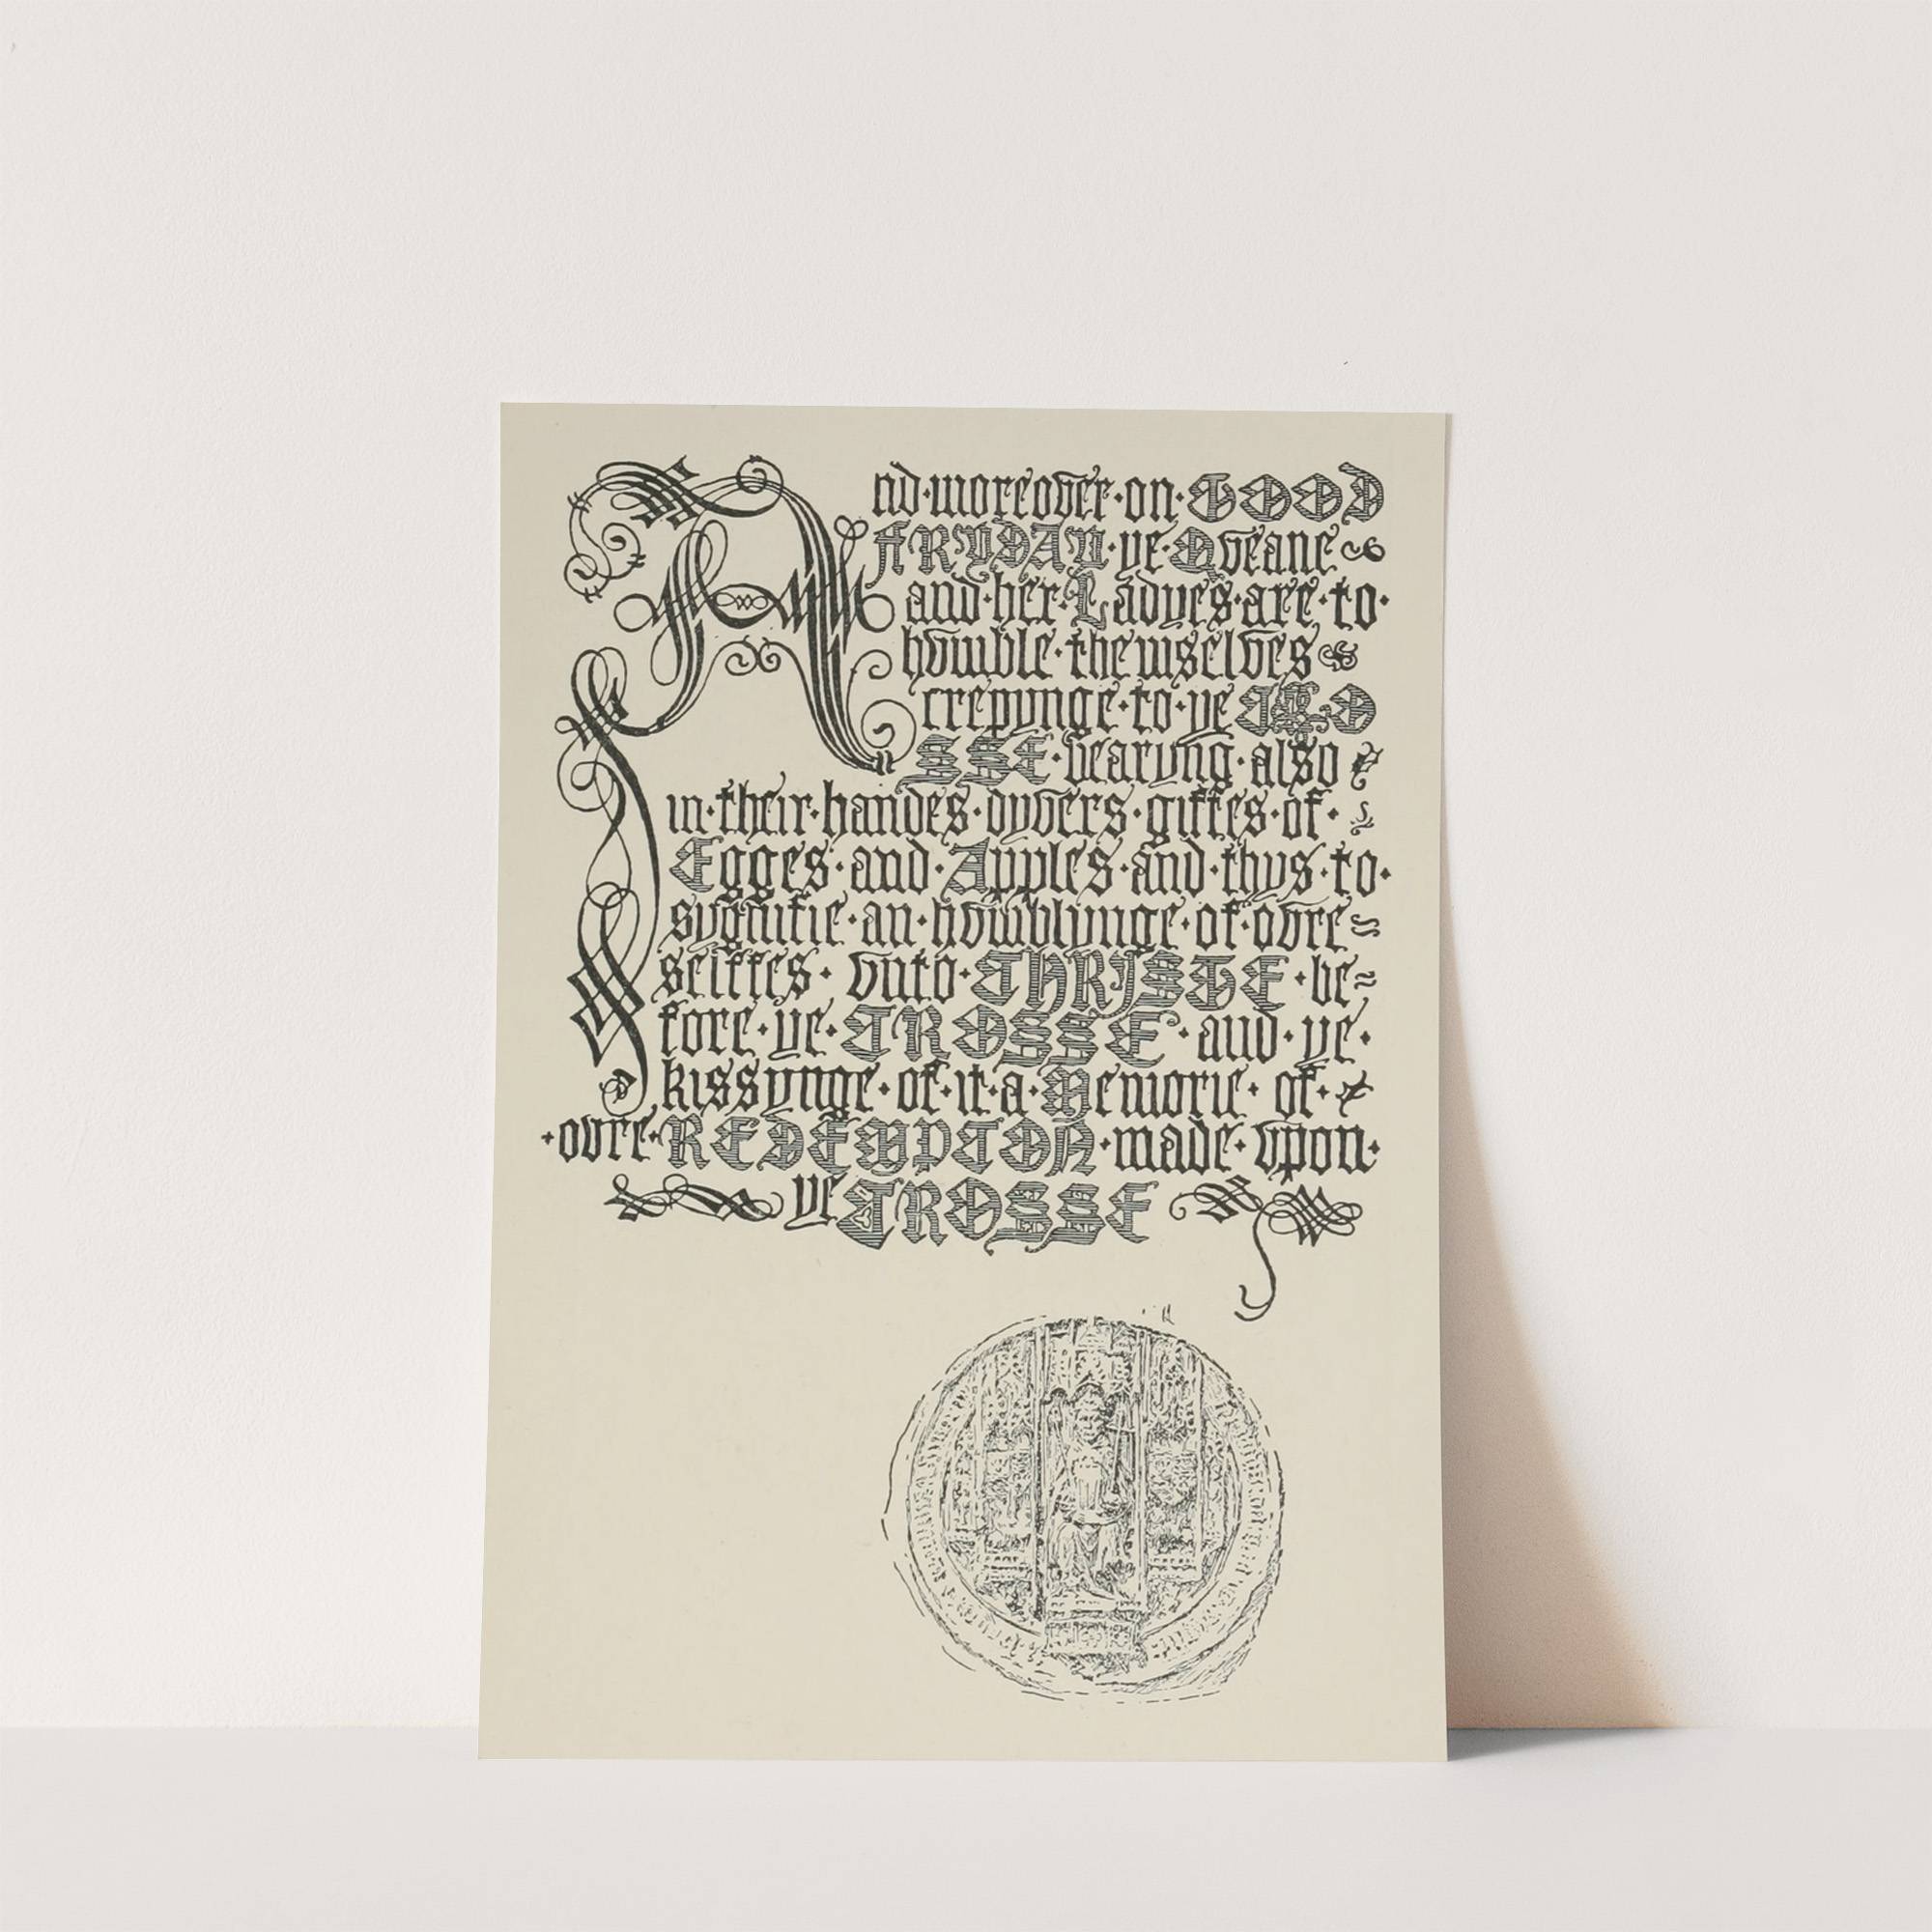 And·moreover·on·GOOD
FRYDAY·ye·Qveane
and·her·Ladyes·are·to·
hvmble·themselves
crepynge·to·ye CRO
SSE·bearyng·also
in·their·handes·dyvers·giftes·of·
Egges·and·Apples·and·thvs·to·
sygnifie·an·hvmblynge·of·ovre=
selffes· vnto·CHRYSTE·be=
fore·ye·CROSSE·and·ye·
kissynge·of·it·a·Memorie· of·
·ovre·REDEMPCON·made·vpon·
ye CROSSE